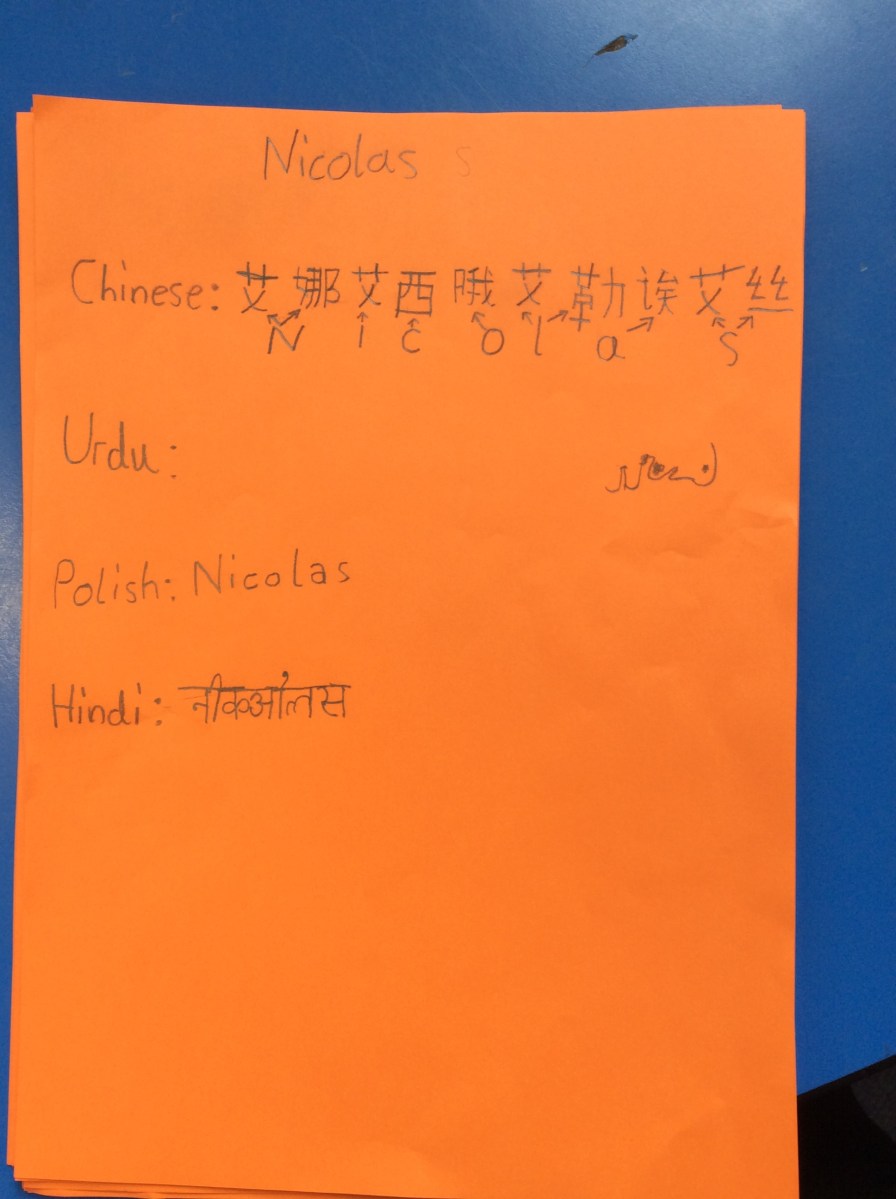 Nicolas s
Chinese: 艾娜艾西哦艾勒诶艾丝
N i c o l a s
Urdu:
Polish: Nicolas
Hindi: नीकओलस